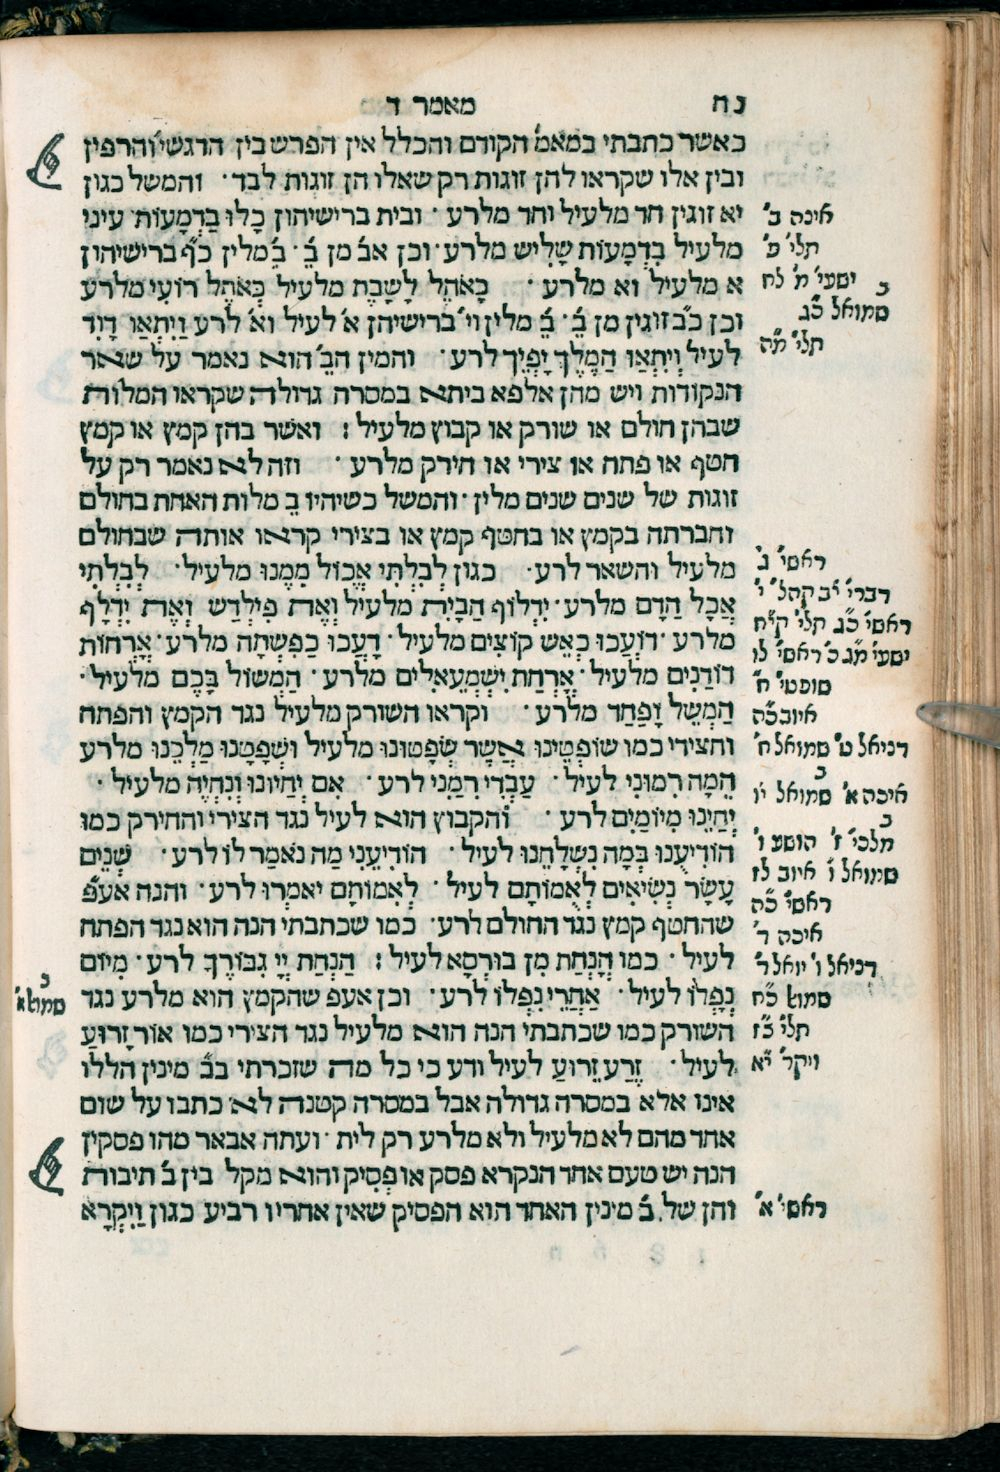 נח
מאמר ד
כאשר כתבתי במאמ׳ הקודם והכלל אין הפרש בין הדגשי׳ והרפין
ובין אלו שקראו להן זוגות רק שאלו הן זוגות לבד · והמשל כגון
יא זוגין חד מלעיל וחד מלרע · ובית ברישיהון כָלוּ בַדְמָעוֹת עיני
מלעיל בִדְמָעוֹת שָלִיש מלרע · וכן א֗ב֗ מן ב֗ · ב֗ מלין כ֗ף ברישיהון
א מלעיל וא מלרע · כָאֹהֶל לָשָבֶת מלעיל כְּאֹהֶל רוֹעִי מלרע
וכן כ֗ב זוגין מן ב֗ · ב֗ מלין וי׳ ברישיהן א׳ לעיל וא׳ לרע וַיִתְאַו דָוִד
לעיל וְיִתְאַו הַמֶלֶךְ יָפְיֵךְ לרע · והמין הב֗ הוא נאמר על שאר
הנקודות ויש מהן אלפא ביתא במסרה גדולה שקראו המלות
שבהן חולם או שורק או קבוץ מלעיל : ואשר בהן קמץ או קמץ
חטף או פתח או צירי או חירק מלרע · וזה לא נאמר רק על
זוגות של שנים שנים מלין · והמשל כשיהיו ב֗ מלות האחת בחולם
וחברתה בקמץ או בחטף קמץ או בצירי קראו אותה שבחולם
מלעיל והשאר לרע · כגון לְבִלְתִי אֲכוֹל מִמֶנוּ מלעיל · לְבִלְתִי
אֲכָל הַדָם מלרע · יִדְלוֹף הַבָיִת מלעיל וְאֶת פִילְדָש וְאֶת יִדְלָף
מלרע · דוֹעֲכוּ כְאֵש קוֹצִים מלעיל · דָעֲכוּ כַפִשְתָה מלרע · אָרְחוֹת
דוֹדַנִים מלעיל · אָרְחַת יִשְמְעֵאלִים מלרע · הַמְשוֹל בָכֶם מלעיל ·
הַמְשֵל וָפַחַד מלרע · וקראו השורק מלעיל נגד הקמץ והפתח
והצירי כמו שוֹפְטֵינוּ אֲשֶר שְפָטוּנוּ מלעיל וּשְפָטָנוּ מַלְכֵנוּ מלרע
הֵמָה רִמוּנִי לעיל · עַבְדִי רִמָנִי לרע · אִם יְחַיוּנוּ וְנִחְיֶה מלעיל ·
יְחַיֵנוּ מִיוֹמַיִם לרע · והקבוץ הוא לעיל נגד הצירי והחירק כמו
הוֹדִיעֻנוּ בְמָה נְשַלְחֶנוּ לעיל · הוֹדִיעֵנִי מַה נֹאמַר לוֹ לרע · שְנֵים
עָשָר נְשִיאִים לְאֻמוֹתָם לעיל · לְאִמוֹתָם יֹאמְרוּ לרע · והנה אע֗פ
שהחטף קמץ נגד החולם לרע · כמו שכתבתי הנה הוא נגד הפתח
לעיל · כמו הָנְחַת מִן כורְסֵא לעיל : הַנְחַת יְיָ גִבּוֹרֶיךָ לרע · מִיוֹם
נָפְלוֹ לעיל · אַחֲרֵי נִפְלוֹ לרע · וכן אעפ שהקמץ הוא מלרע נגד
השורק כמו שכתבתי הנה הוא מלעיל נגד הצירי כמו אוֹר זָרוּעַ
לעיל · זֶרַע זֵרוּעַ לעיל ודע כי כל מה שזכרתי בב֗ מינין הללו
אינו אלא במסרה גדולה אבל במסרה קטנה לא כתבו על שום
אחד מהם לא מלעיל ולא מלרע רק לית · ועתה אבאר מהו פסקין
הנה יש טעם אחד הנקרא פסק או פְסִיק והוא מקל בין ב֗ תיבות
והן של ב֗ מינין האחד הוא הפסיק שאין אחריו רביע כגון וַיִקְרָא
איכה ב׳
תלי׳ פ׳
ישעי׳ מ׳ לח
ב
שמואל כ֗ג
תלי׳ מ֗ה
ראשי׳ ג׳
דברי׳ י֗ב קהל׳ י׳
ראשי׳ כ֗ב תלי׳ קי֗ח
ישעי׳ מ֗ג כ׳ ראשי׳ לז
שופטי׳ ח׳
איוב כ֗ה
דניאל ט׳ שמואל ח׳
ב
איכה א׳ שמואל י֗ז
ב
מלכי׳ ז׳ הושע ו׳
שמואל ו׳ איוב לז
ראשי׳ כ֗ה
איכה ד׳
דניאל ו׳ יואל ד׳
שמוא׳ כ֗ח
ב
שמוא׳ א׳
תלי׳ צ֗ז
ויקר׳ י֗א
ראשי׳ א׳